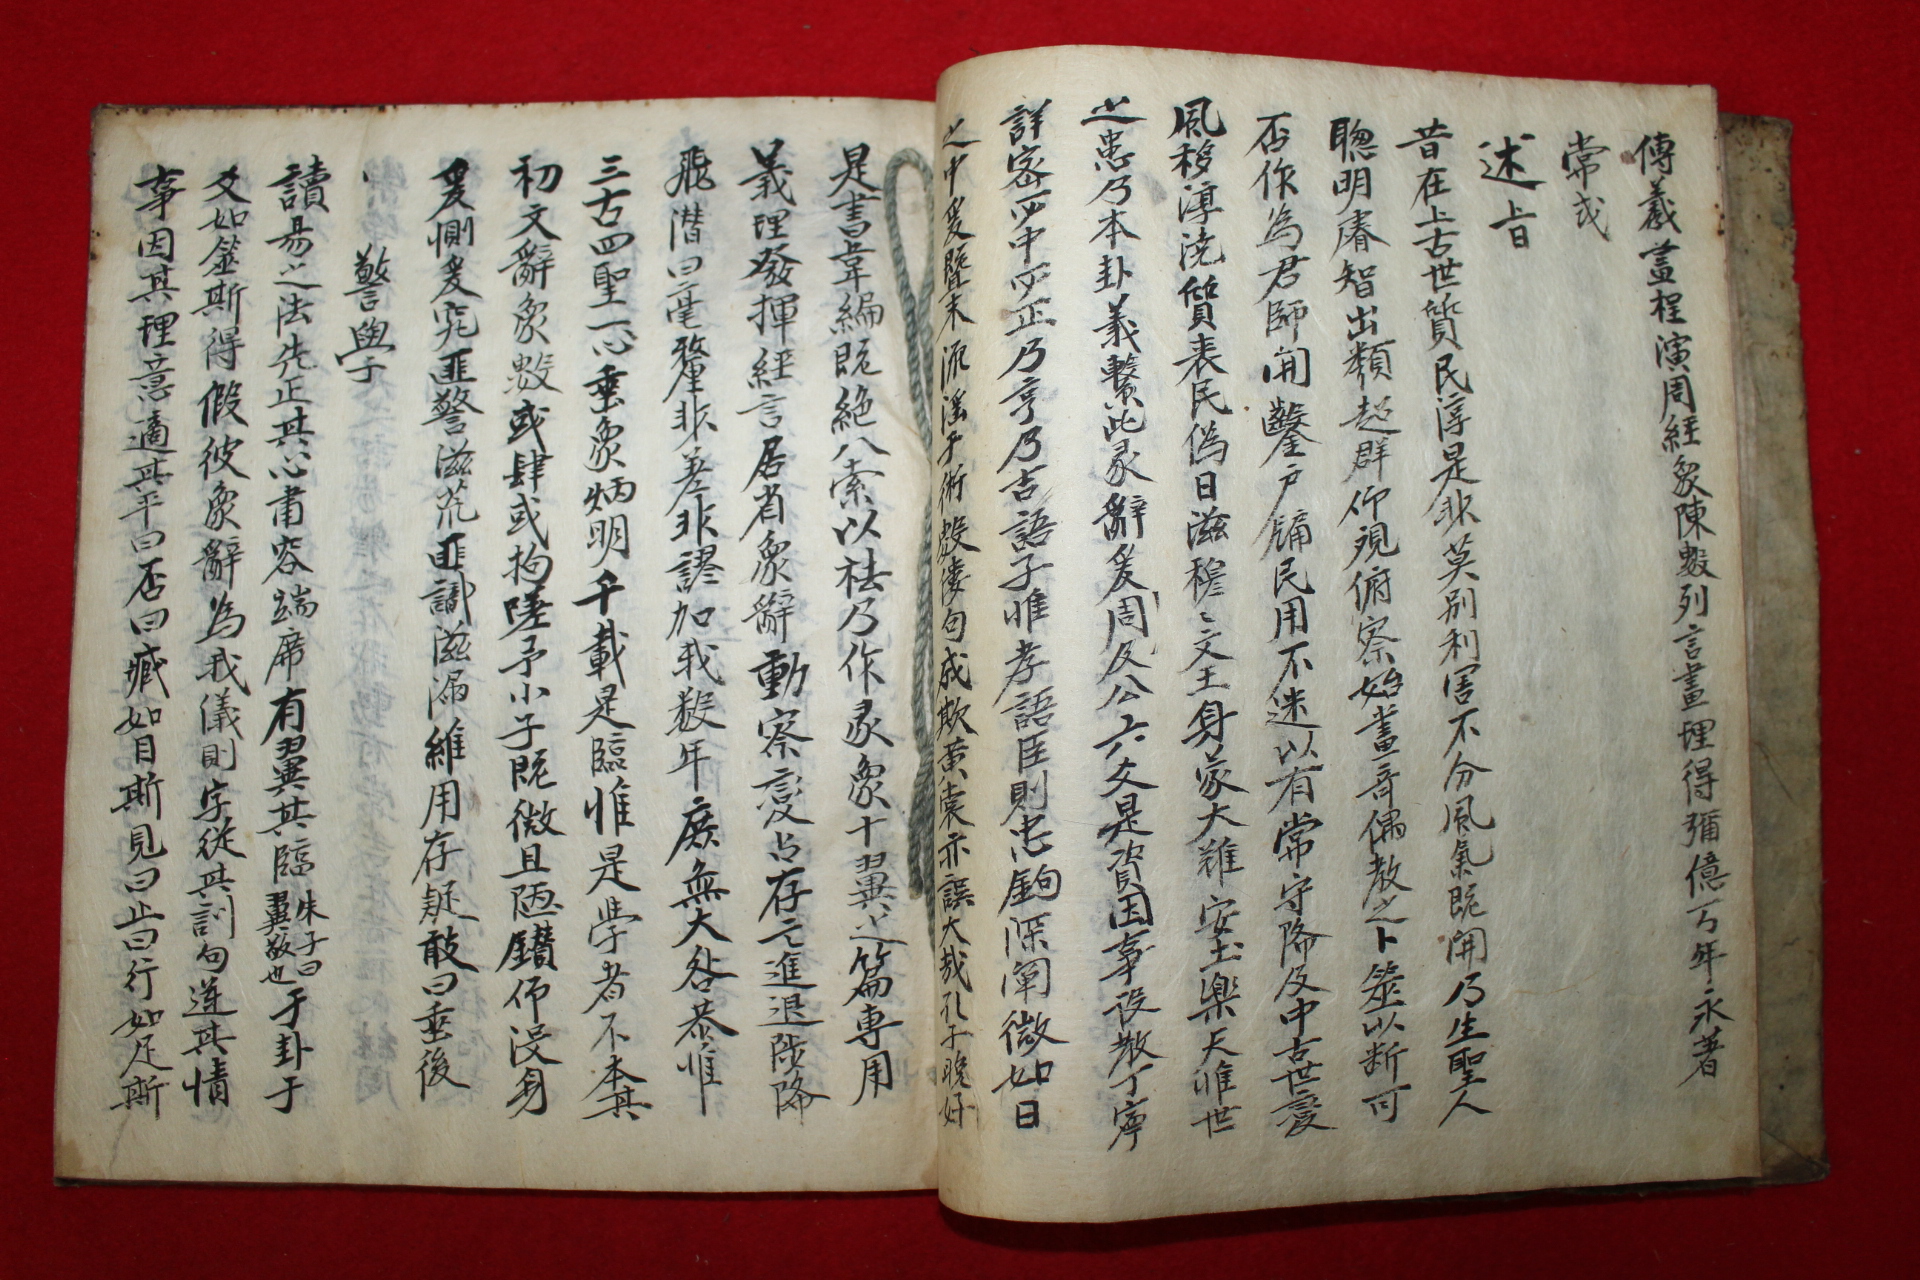 傳羲畫程演周經象陳數列言盡理得彌億万年永著
常式
述旨
昔在上古世質民淳是非莫別利害不分風氣旣開乃生聖人
聰明睿智出類超群仰視俯察始畫奇偶教之卜筮以斷可
否作為君師開鑿戶牖民用不迷以有常守降及中古世變
風移淳澆質喪民偽日滋穆〻文王身蒙大難安土樂天惟世
之患乃本卦義繫此彖辭爰周及公六爻是資因事設教丁寧
詳密必中必正乃亨乃吉語子惟孝語臣則忠鉤深闡微如日
之中爰曁末流淫于術數僂句成欺黃裳亦誤大哉孔子晚好
是書韋編旣絶八索以祛乃作彖象十翼之篇專用
義理發揮經言居省象辭動察變占存亡進退陟降
飛潛曰毫釐非差非謬加我數年庶無大咎恭惟
三古四聖一心垂象炳明千載是臨惟是學者不本其
初文辭象數或肆或拘嗟予小子旣微且陋鑽仰沒身
爰惻爰究匪警滋荒匪識滋漏維用存疑敢曰垂後
警學
讀易之法先正其心肅容端席有翼其臨 朱子曰翼敬也 于卦于
爻如筮斯得假彼象辭為我儀則字從其訓句逆其情
事因其理意適其平曰否曰臧如目斯見曰止曰行如足斯